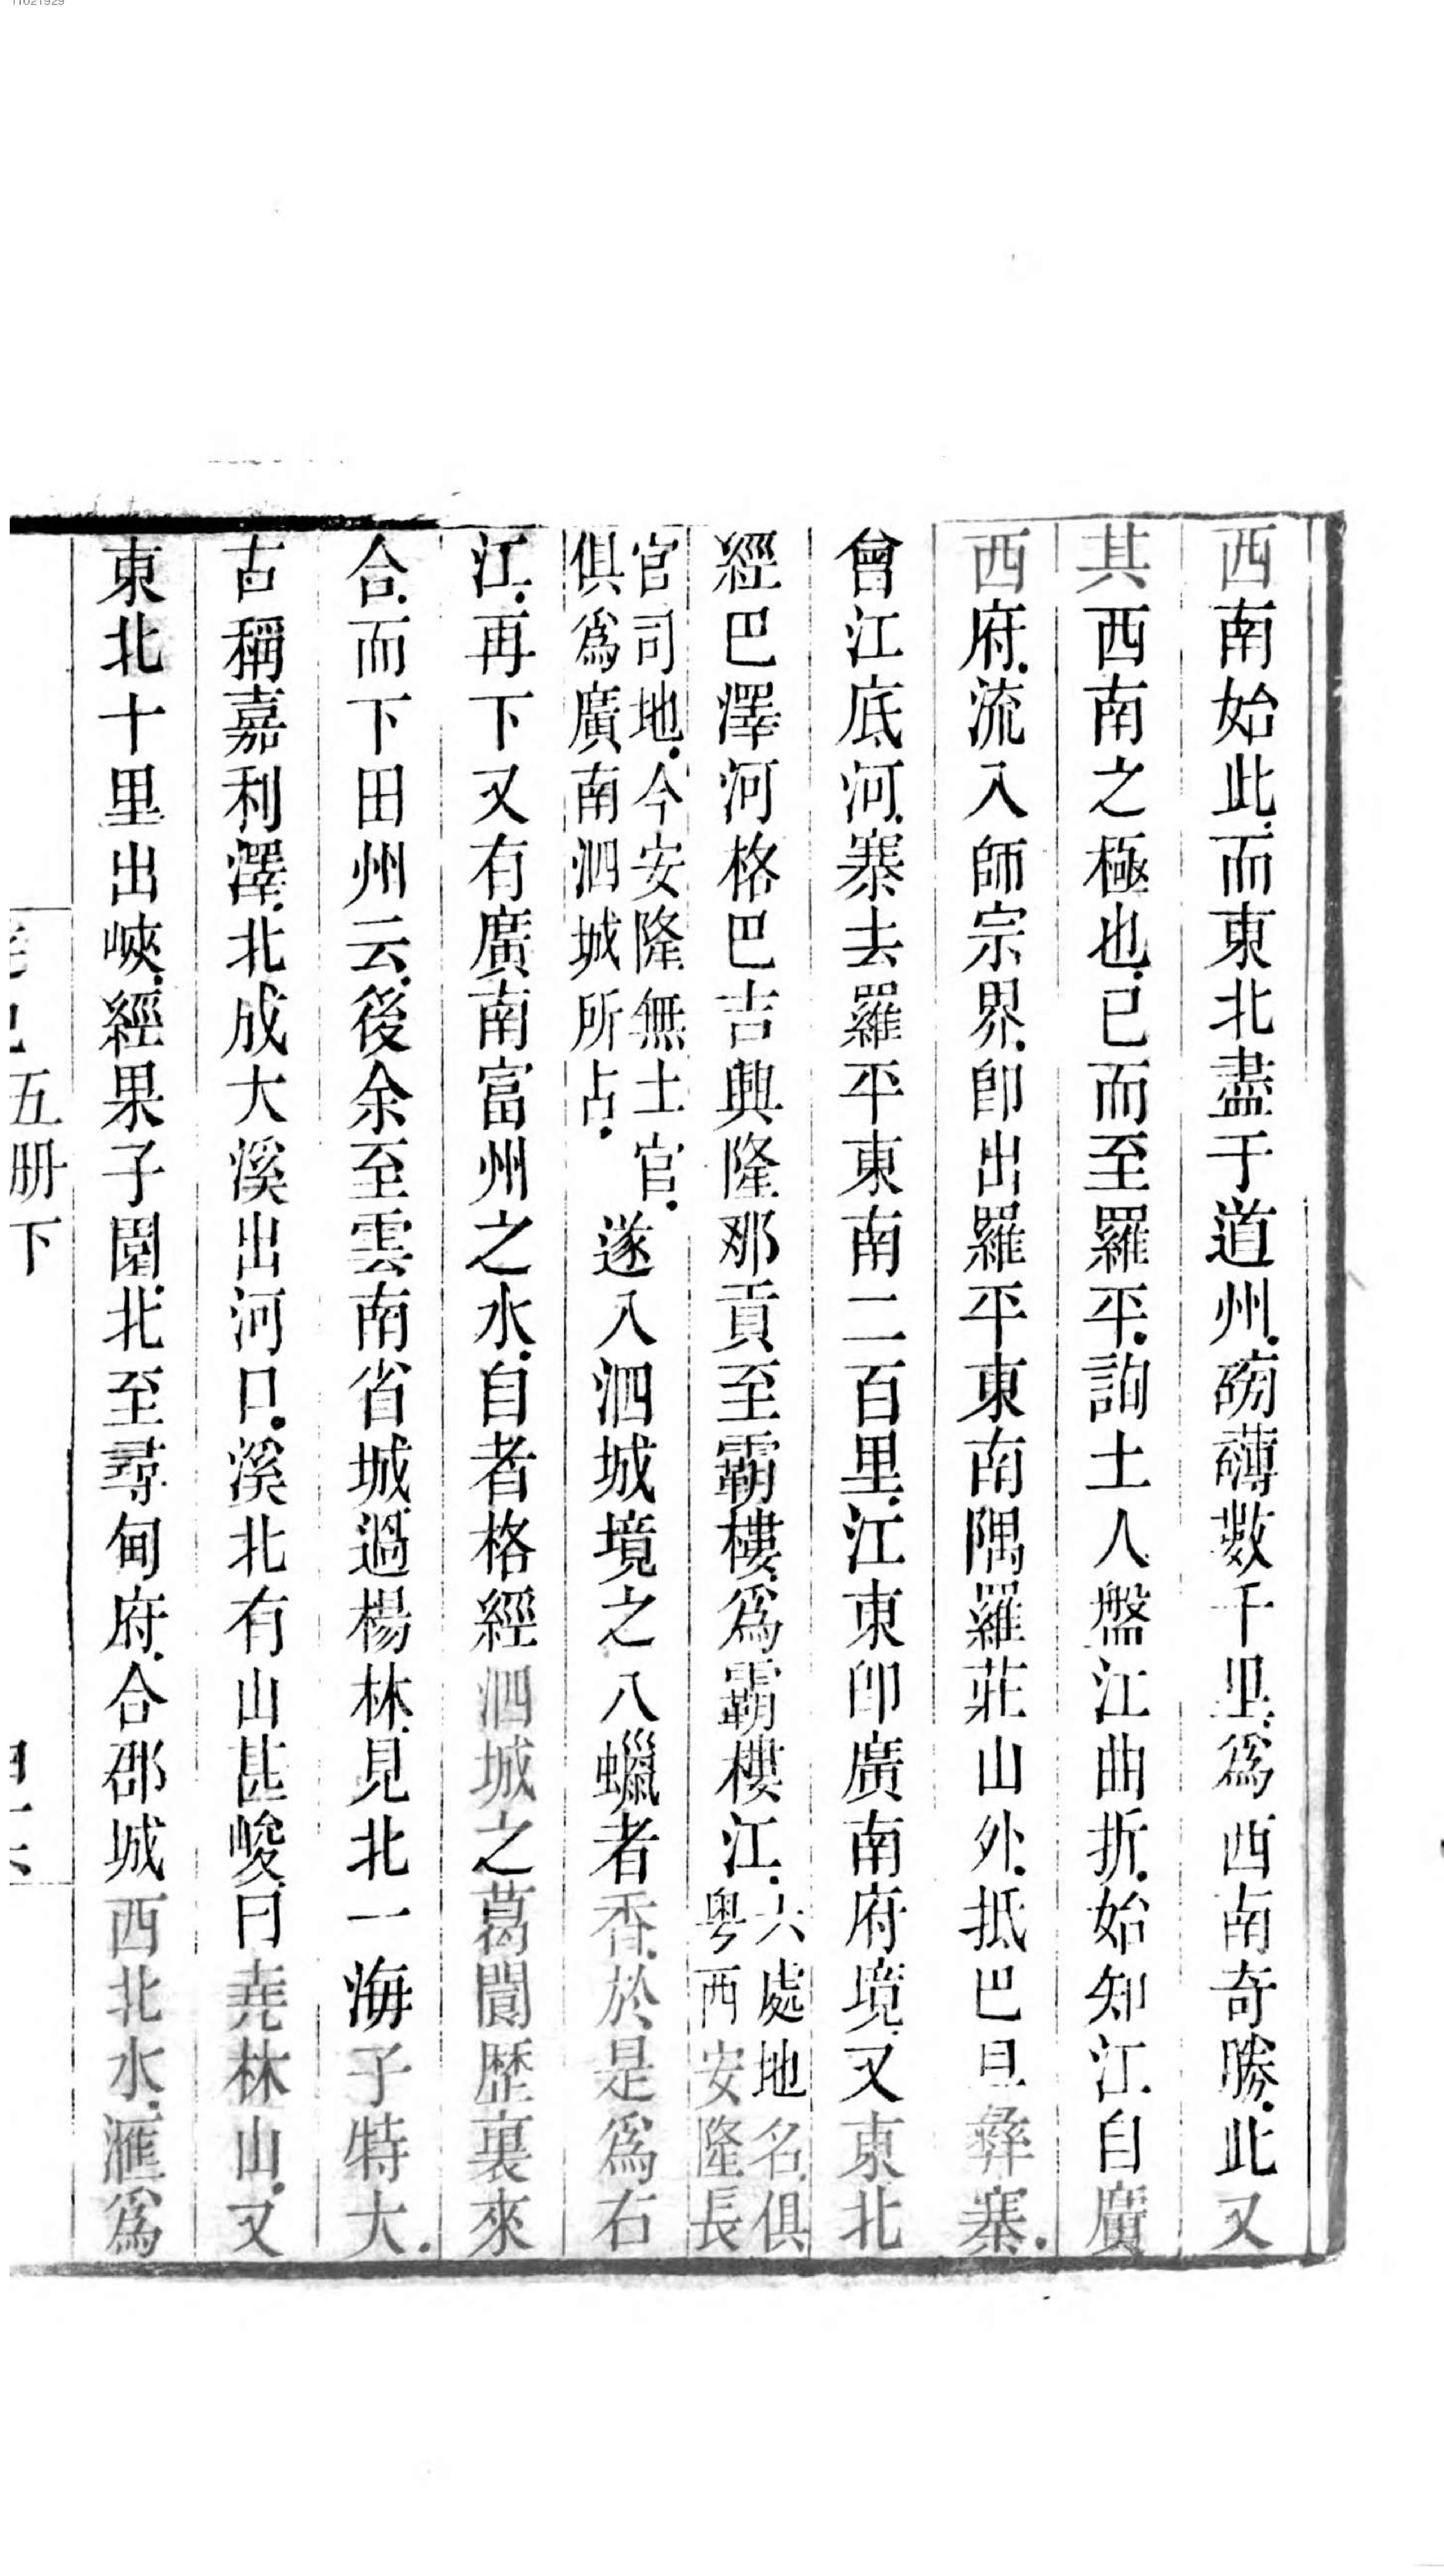 11021929
西南始此.而東北盡于道州.磅礴數千里.爲西南奇勝.此又
其西南之極也.已而至羅平.詢土人盤江曲折.始知江自廣
西府.流入師宗界.卽出羅平東南隅羅莊山外.抵巴旦彝寨.
曾江底河.寨去羅平東南二百里.江東卽廣南府境.又東北
經巴澤河格巴吉興隆那貢至霸樓.爲霸樓江.六處地名.俱
粤西安隆長
官司地.今安隆無土官.
俱爲廣南泗城所占.
遂入泗城境之八蠟者香.於是爲右
江.再下又有廣南富州之水.自者格經泗城之葛閬歷裏來
合.而下田州云.後余至雲南省城.過楊林.見北一海子特大.
古稱嘉利澤.北成大溪出河口.溪北有山甚峻.曰堯林山.又
東北十里出峽.經果子園.北至尋甸府.合郡城西北水.滙爲
五册下